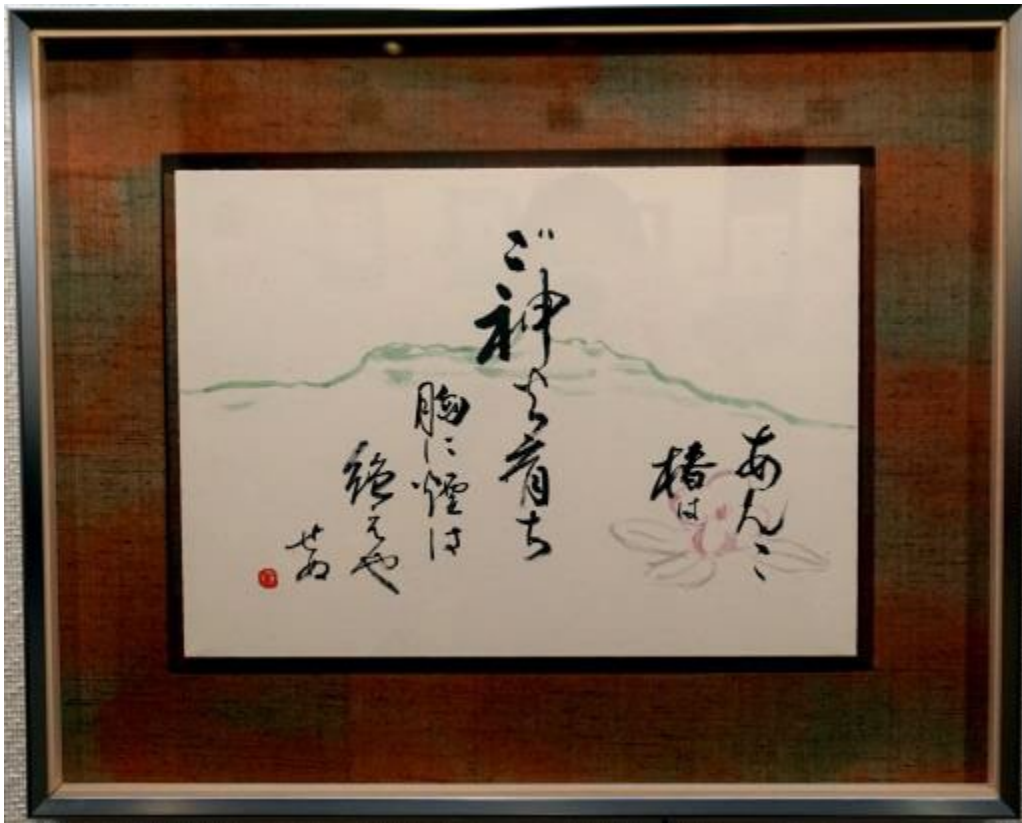 あんこ
椿は
ご神火育ち
胸に煙は
絶えや
せぬ